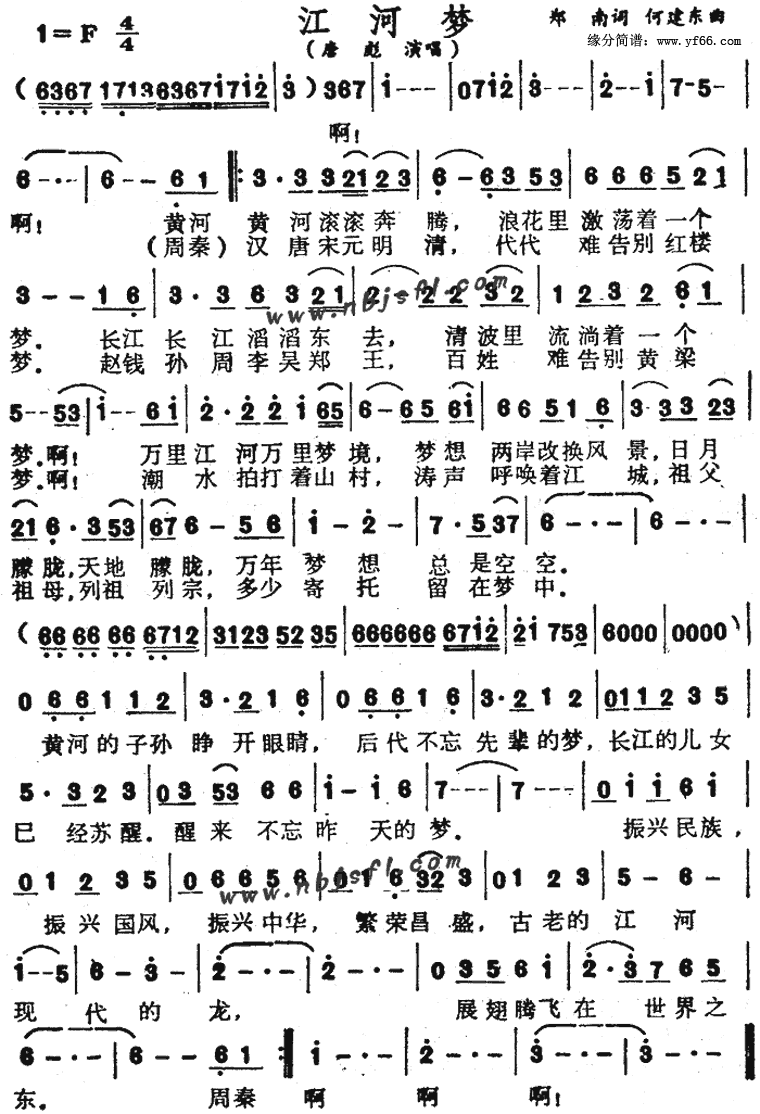 江河梦
郑 南词 何建东曲
1=F 4/4
(唐 彪 演唱)
缘分简谱：www.yf66.com
(6367 17136367171 2 | 3)367 | 1--- | 0712 | 3--- | 2--1 | 7-5- |
啊！
6-·- | 6-- 61 |: 3·3 3 21 23 | 6-63 53 | 666 5 21 |
啊！ 黄河 黄 河滚滚奔 腾， 浪花里 激荡着一个
(周秦) 汉 唐宋元明 清， 代代 难告别红楼
3--16 | 3·3 6 3 21 | 2-22 32 | 1232 61 |
www.nbjsfl.com
梦． 长江 长 江滔滔东 去， 清波里 流淌着一个
梦． 赵钱 孙 周李吴郑 王， 百姓 难告别黄粱
5--53 | 1--61 | 2·2 2 2 1 65 | 6-65 61 | 66516 | 3-33 23 |
梦．啊！ 万里江 河万里梦境， 梦想 两岸改换风 景，日月
梦．啊！ 潮 水 拍打着山村， 涛声 呼唤着江 城，祖父
21 6·3 53 | 67 6-56 | 1-2- | 7·5 37 | 6-·- | 6-·- |
朦胧，天地 朦胧，万年 梦 想 总 是空 空．
祖母，列祖 列宗，多少 寄 托 留 在梦 中．
(66 66 66 6712 | 3123 52 35 | 666666 6712 | 21 753 | 6000 | 0000) |
0 66 1 12 | 3·216 | 0 66 1 6 | 3·212 | 0112 35 |
黄河的子孙 睁 开眼睛， 后代不忘 先 辈的梦，长江的儿女
5·323 | 03 53 66 | 1-16 | 7--- | 7--- | 01 161 |
已 经苏醒．醒来 不忘昨 天的 梦． 振兴民族，
01 235 | 06 656 | 01 6 32 3 | 01 23 | 5-6- |
www.nbjsfl.com
振兴国风， 振兴中华， 繁荣昌 盛，古老的 江 河
1--5 | 6-3- | 2-·- | 2-·- | 03 561 | 2·3 7 65 |
现 代 的 龙， 展翅腾飞在 世界之
6-·- | 6-- 61 :| 1-·- | 2-·- | 3-·- | 3-·- ‖
东． 周秦 啊 啊 啊！